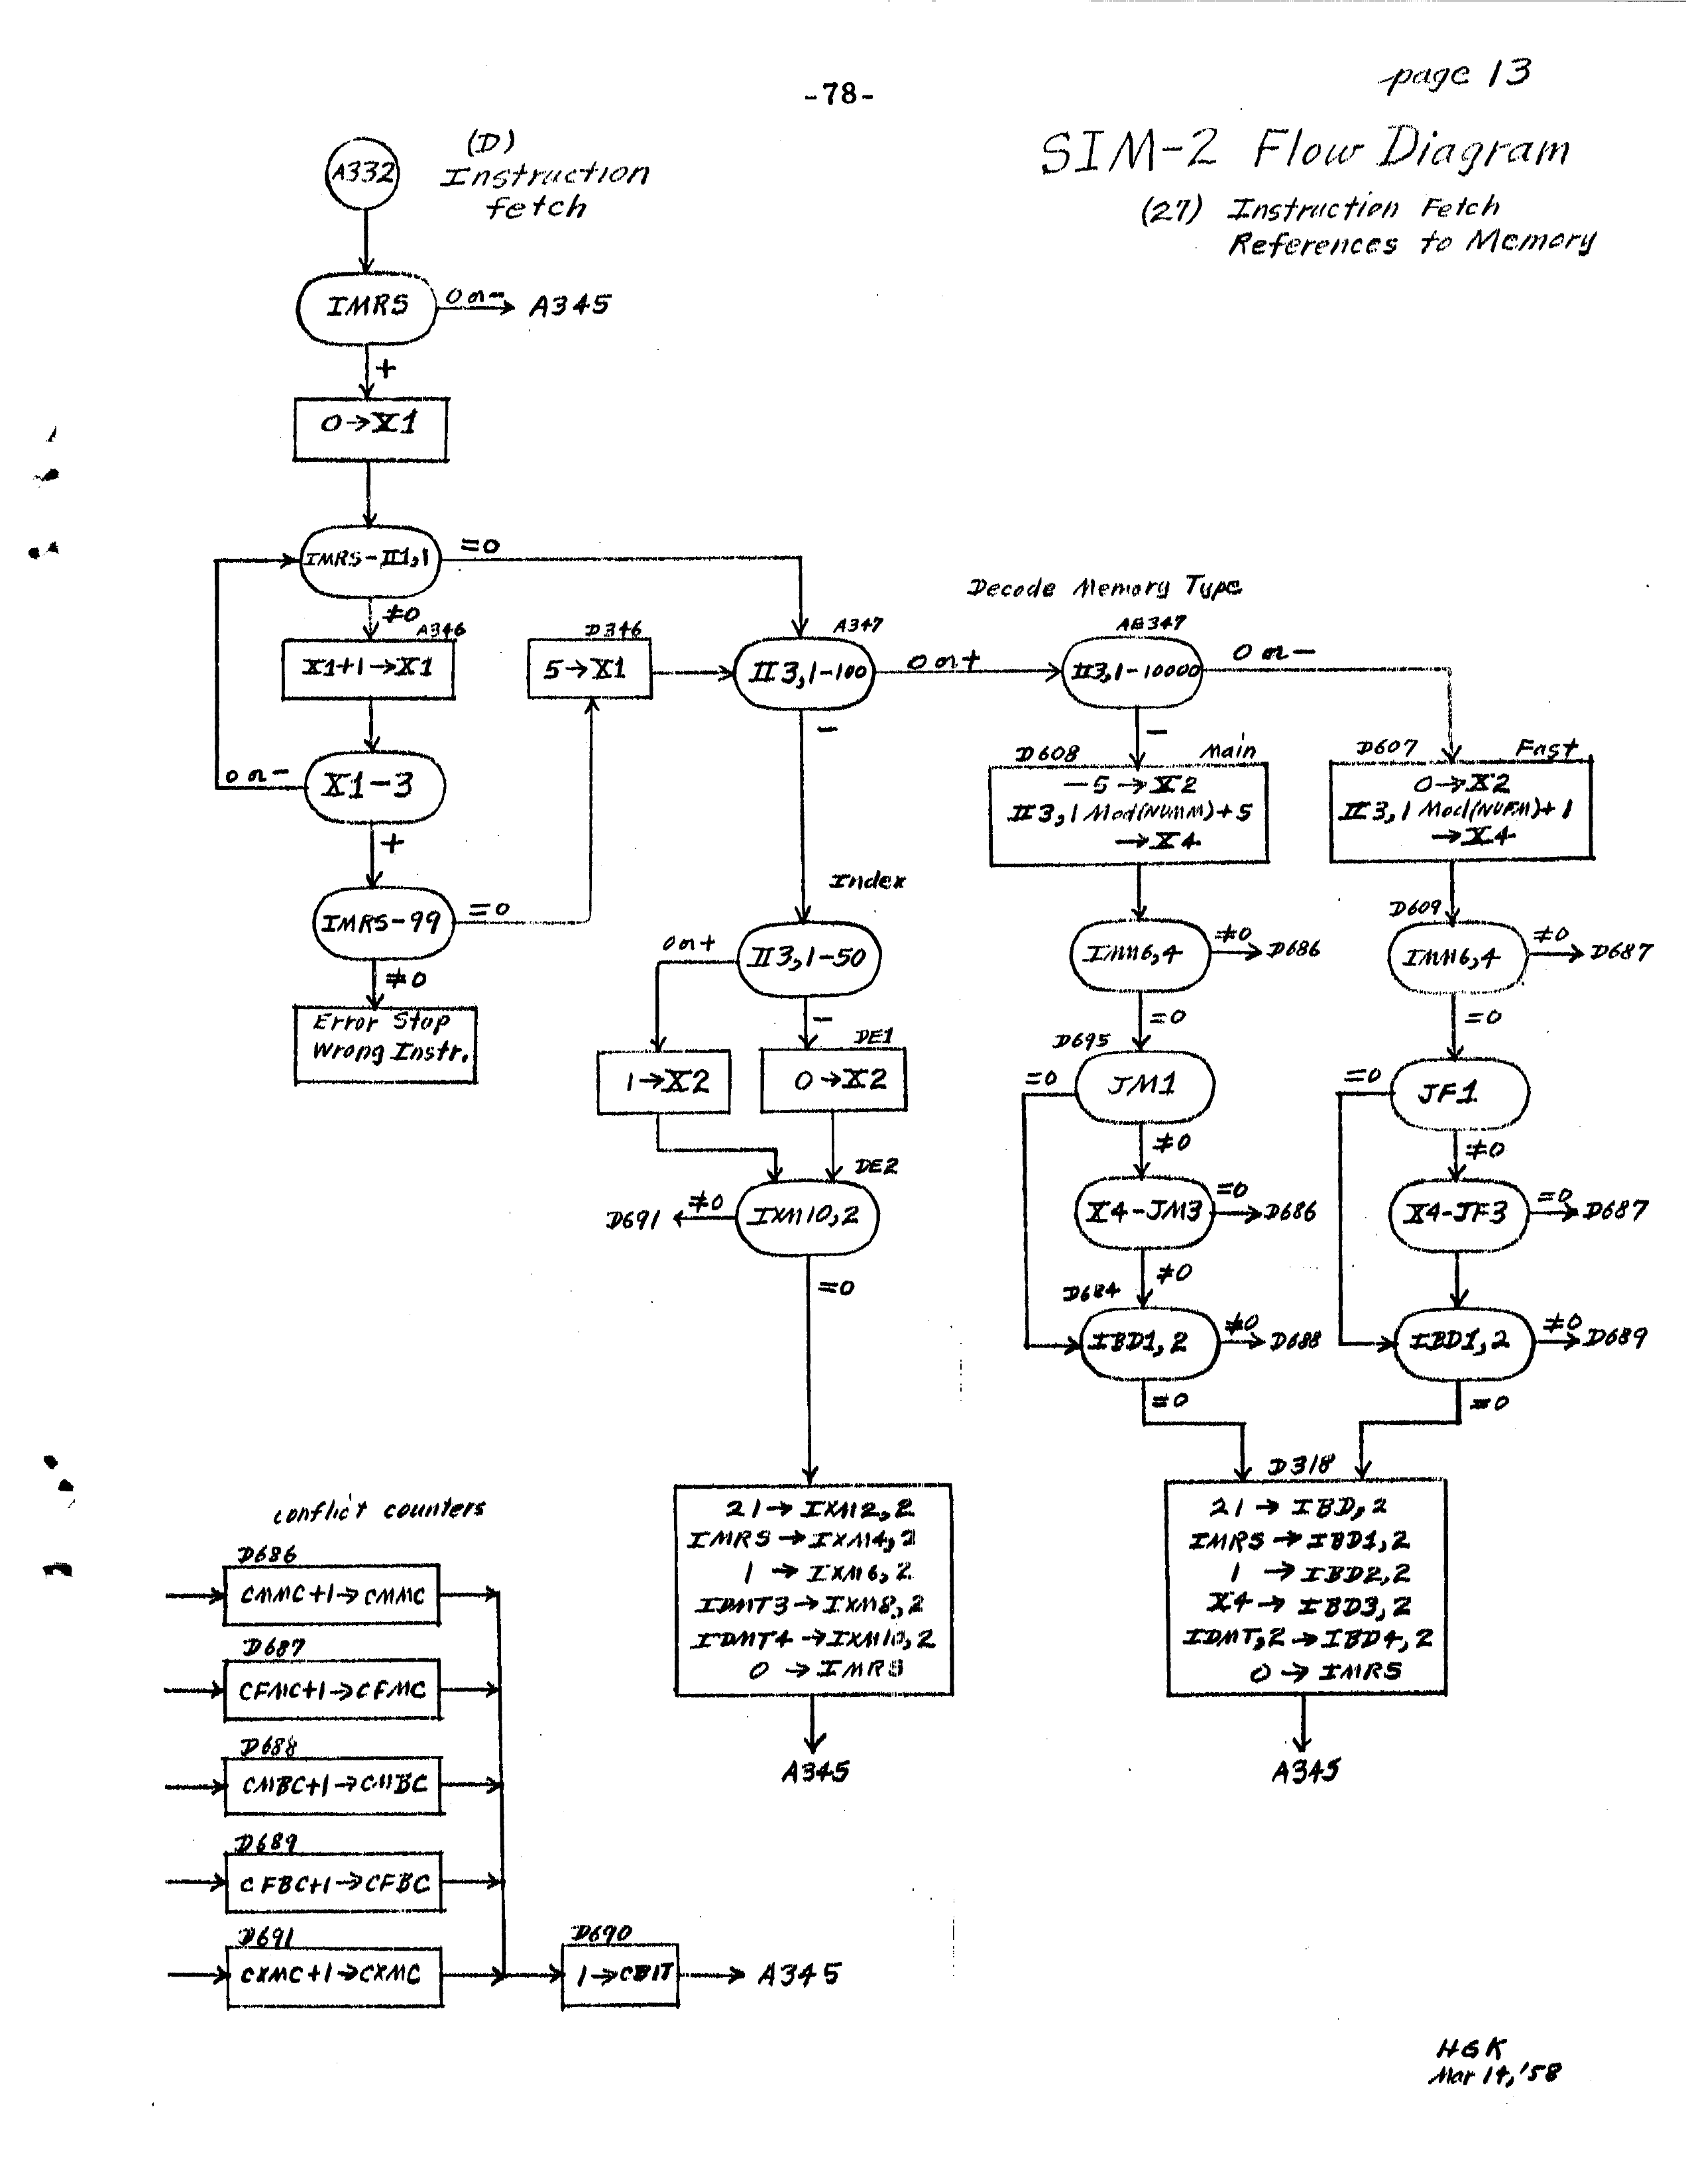 -78-
page 13
SIM-2 Flow Diagram
(27) Instruction Fetch
References to Memory
A332
(D)
Instruction
fetch
IMRS
0 or -
A345
+
0→X1
IMRS-II1,1
=0
≠0
A346
X1+1→X1
D346
5→X1
X1-3
0 or -
+
IMRS-99
=0
≠0
Error Stop
Wrong Instr.
A347
II3,1-100
0 or +
-
Decode Memory Type
AE347
II3,1-10000
0 or -
-
Index
II3,1-50
0 or +
-
1→X2
DE1
0→X2
DE2
IXM10,2
≠0
D691
=0
21→IXM2,2
IMRS→IXM4,2
1→IXM6,2
IDMT3→IXM8,2
IDMT4→IXM10,2
0→IMRS
A345
D608
Main
-5→X2
II3,1 Mod(NUMM)+5
→X4
IMM6,4
≠0
D686
=0
D695
JM1
=0
≠0
X4-JM3
=0
D686
≠0
D684
IBD1,2
≠0
D688
=0
D607
Fast
0→X2
II3,1 Mod(NUFM)+1
→X4
D609
IMM6,4
≠0
D687
=0
JF1
=0
≠0
X4-JF3
=0
D687
IBD1,2
≠0
D689
=0
D318
21→IBD,2
IMRS→IBD1,2
1→IBD2,2
X4→IBD3,2
IDMT,2→IBD4,2
0→IMRS
A345
conflict counters
D686
CMMC+1→CMMC
D687
CFMC+1→CFMC
D688
CMBC+1→CMBC
D689
CFBC+1→CFBC
D691
CXMC+1→CXMC
D690
1→CBIT
A345
HGK
Mar 14, '58